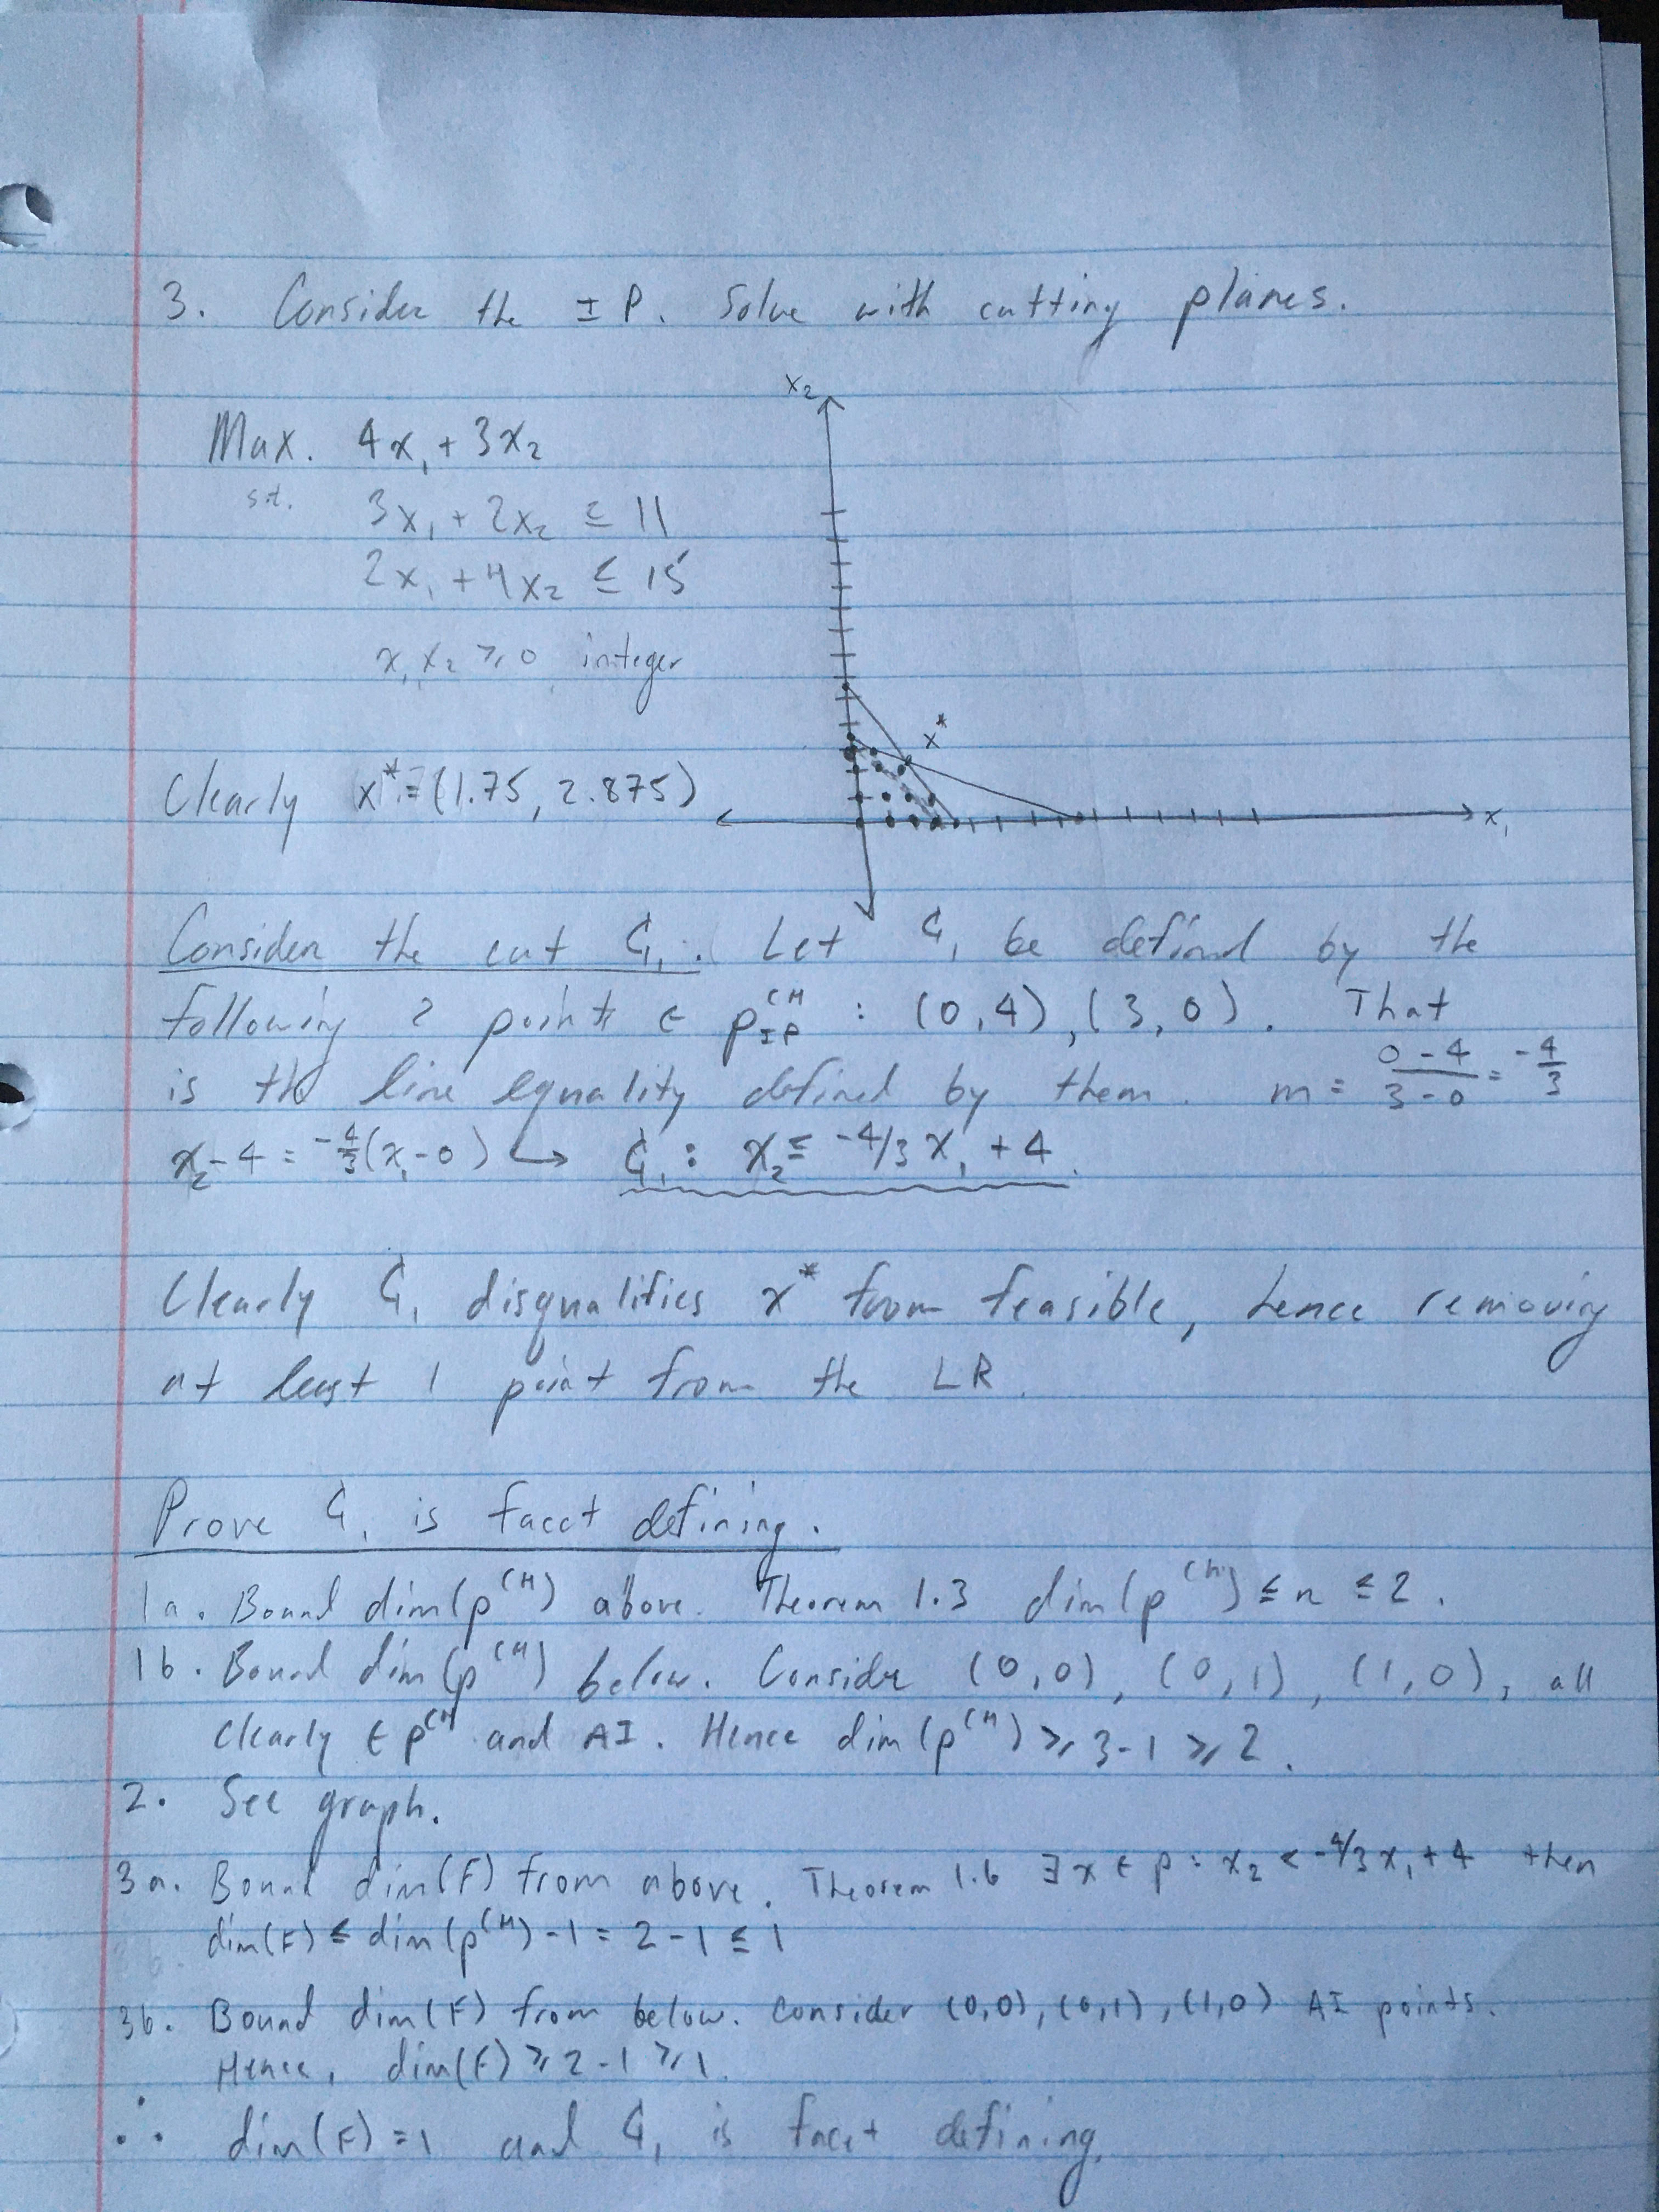 3. Consider the IP. Solve with cutting planes.
x₂
Max. 4x₁ + 3x₂
s.t. 3x₁ + 2x₂ ≤ 11
2x₁ + 4x₂ ≤ 15
x₁ x₂ ≥ 0 integer
x*
Clearly x* = (1.75, 2.875)
x₁
Consider the cut C₁. Let C₁ be defined by the
following 2 points ∈ P_IP^CH : (0,4), (3,0). That
is the line equality defined by them. m = (0-4)/(3-0) = -4/3
x₂ - 4 = -4/3(x₁ - 0) ↪ C₁ : x₂ ≤ -4/3 x₁ + 4.
Clearly C₁ disqualifies x* from feasible, hence removing
at least 1 point from the LR.
Prove C₁ is facet defining.
1a. Bound dim(P^CH) above. Theorem 1.3 dim(P^CH) ≤ n ≤ 2.
1b. Bound dim(P^CH) below. Consider (0,0), (0,1), (1,0), all
clearly ∈ P^CH and AI. Hence dim(P^CH) ≥ 3-1 ≥ 2.
2. See graph.
3a. Bound dim(F) from above. Theorem 1.6 ∃ x ∈ P : x₂ < -4/3 x₁ + 4 then
dim(F) ≤ dim(P^CH) - 1 = 2 - 1 ≤ 1
3b. Bound dim(F) from below. Consider (0,0), (0,1), (1,0) AI points.
Hence, dim(F) ≥ 2 - 1 ≥ 1.
∴ dim(F) = 1 and C₁ is facet defining.